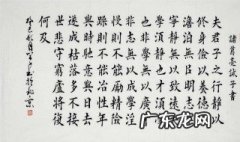 諸葛亮誡子書
夫君子之行靜以
修身儉以養德非
澹泊無以明志非
寧靜無以致遠夫
學須靜也才須學
也非學無以廣才
非志無以成學淫
慢則不能勵精險
躁則不能冶性年
與時馳意與日去
遂成枯落多不接
世悲守窮廬將復
何及
广东龙网